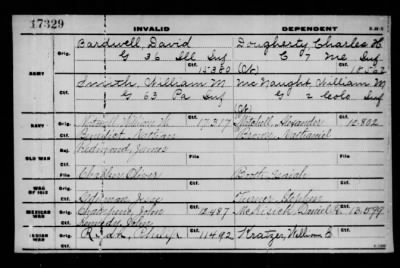 17329
INVALID
DEPENDENT
Bardwell, David
Dougherty, Charles H.
Orig.
G 36 Ill Inf
C 7 Me Inf
Ctf.
15380
(Ct)
ARMY
Smith, William M
McNaught, William M
Orig.
G 63 Pa Inf
G 2 Colo Inf
Ctf.
(Ct)
NAVY
Orig.
17317
Ctf.
Mitchell, Alexander
Ctf.
12802
Benedict, Nathan
Brown, Nathaniel
OLD WAR
Redmond, James
File
File
Chaffin, Oliver
Booth, Isaiah
WAR OF 1812
Orig.
Ctf.
Turner, Stephen
Ctf.
MEXICAN WAR
Orig.
Champine, John
Ctf.
12487
McKissick, Daniel
Ctf.
Kennedy, John
INDIAN WAR
Orig.
Ryan, Philip
Ctf.
11492
Kratzer, William E
Ctf.